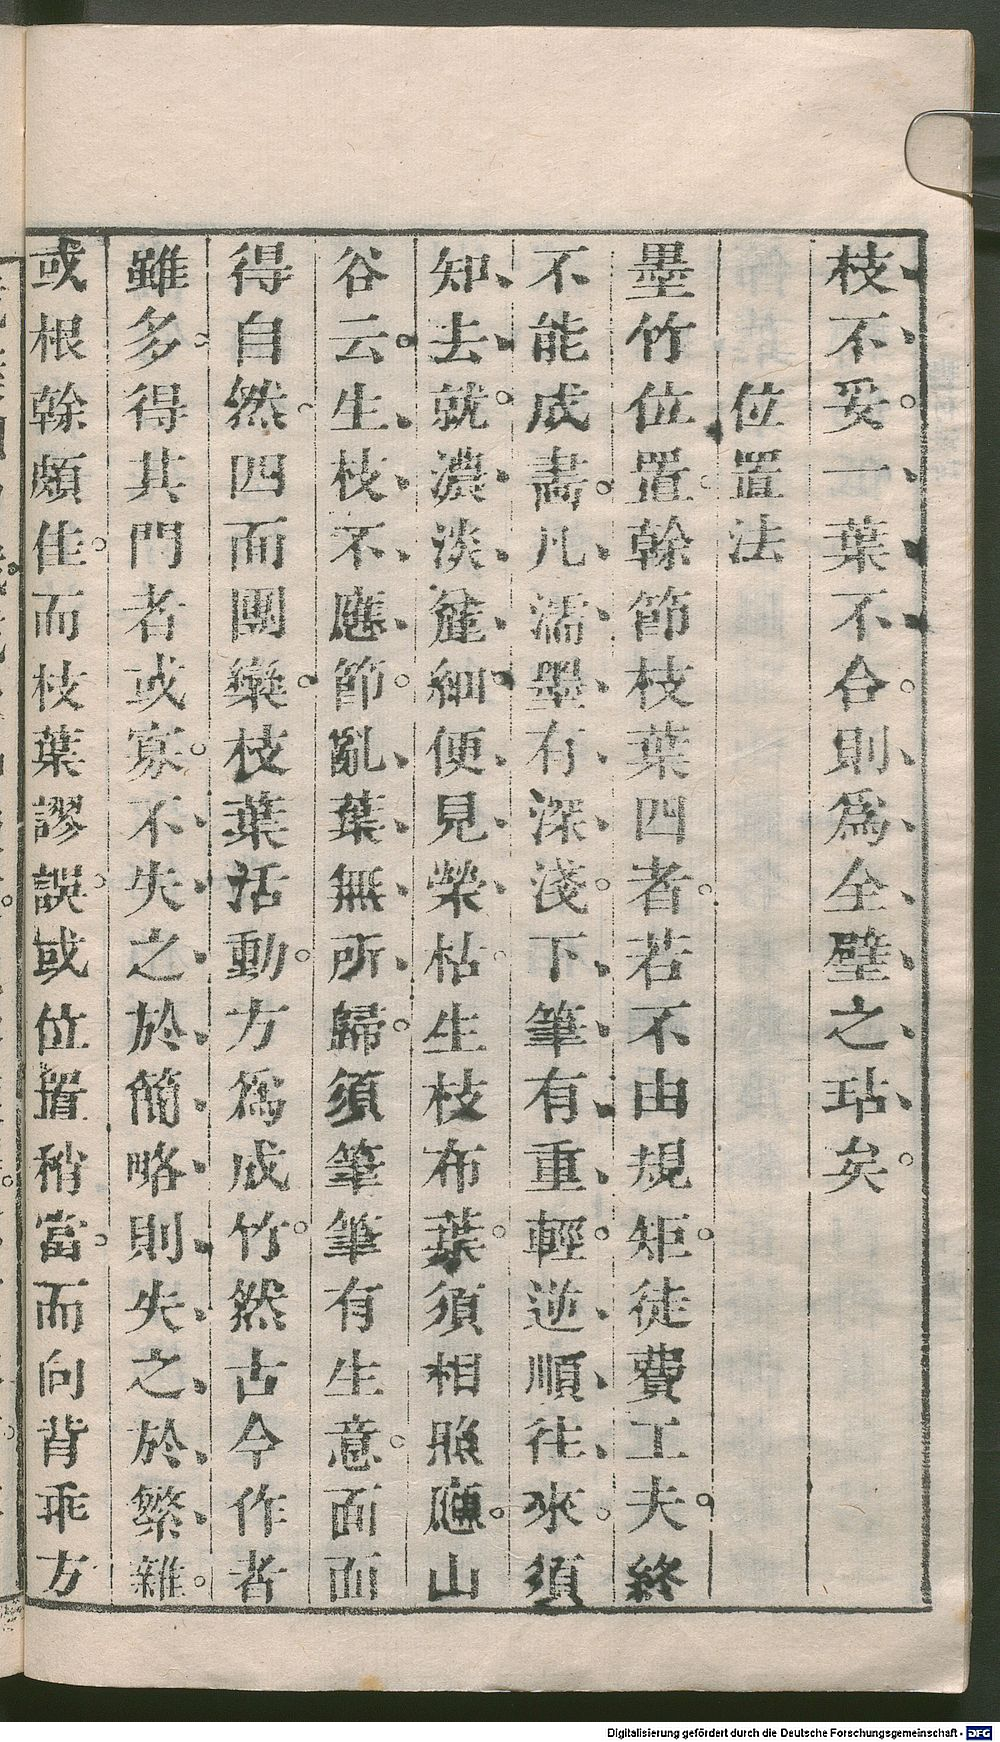 枝不妥一葉不合則爲全璧之玷矣
位置法
墨竹位置榦節枝葉四者若不由規矩徒費工夫終
不能成畵凡濡墨有深淺下筆有重輕逆順往來須
知去就濃淡麄細便見榮枯生枝布葉須相照應山
谷云生枝不應節亂葉無所歸須筆筆有生意面面
得自然四面團欒枝葉活動方爲成竹然古今作者
雖多得其門者或寡不失之於簡略則失之於繁雜
或根榦頗佳而枝葉謬誤或位置稍當而向背乖方
Digitalisierung gefördert durch die Deutsche Forschungsgemeinschaft - DFG